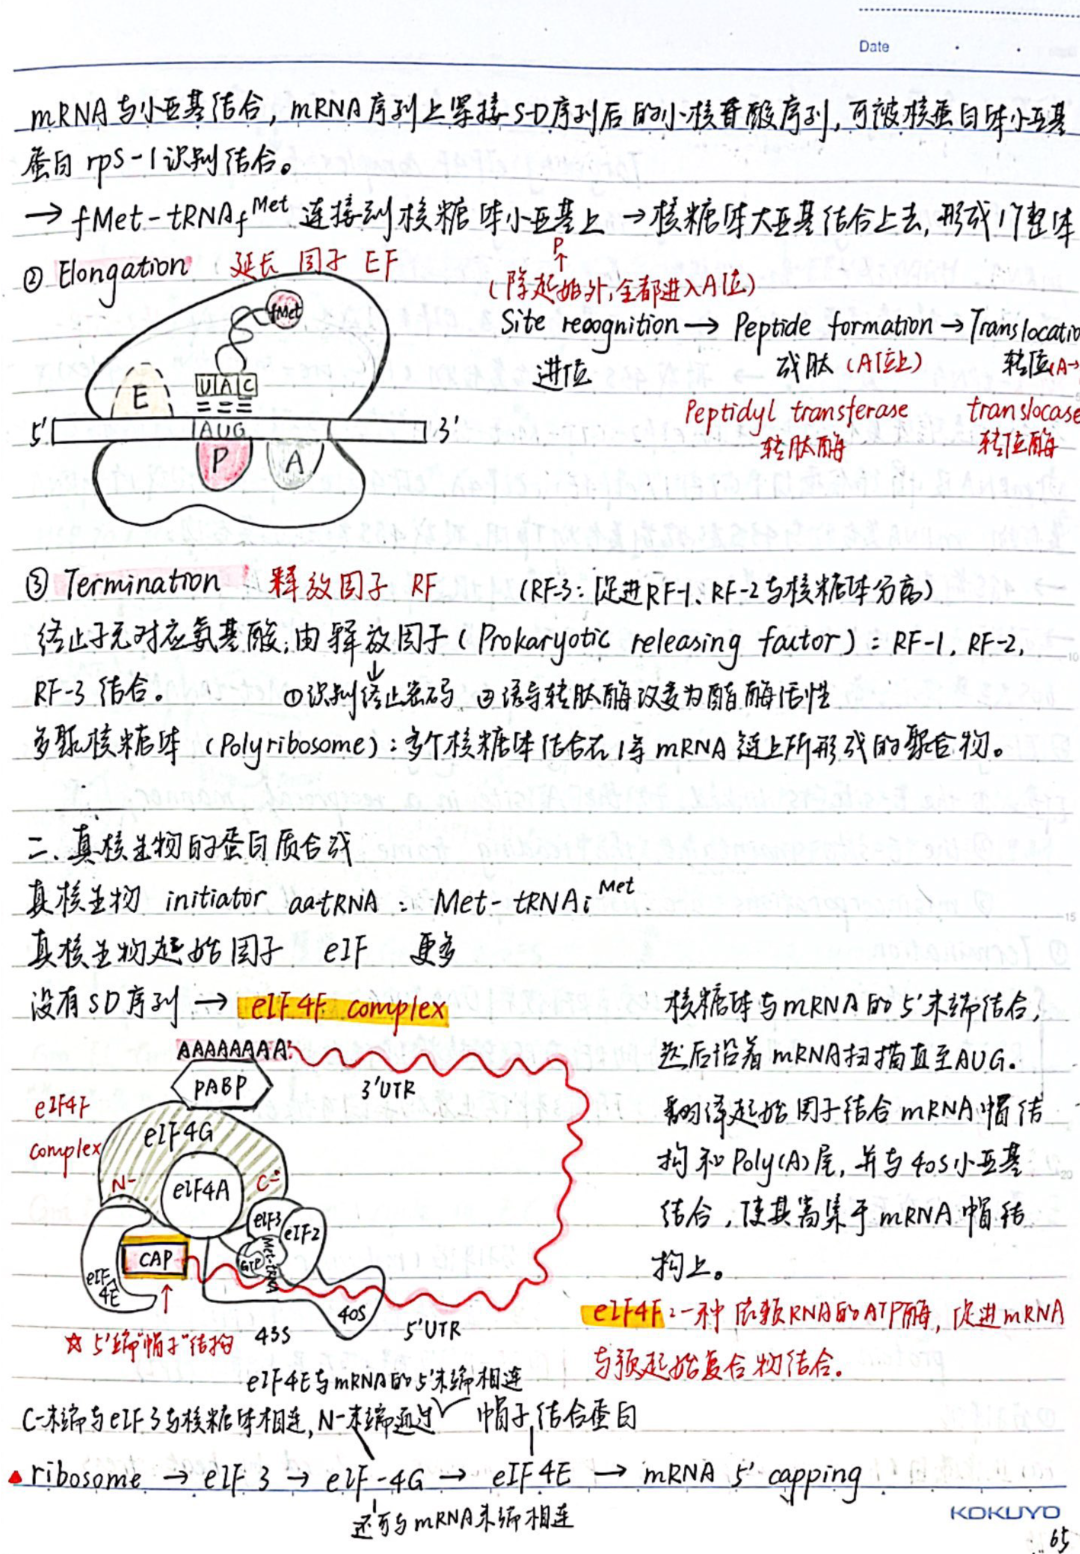 Date
mRNA与小亚基结合，mRNA序列上紧接S-D序列后的小核苷酸序列，可被核蛋白体小亚基
蛋白 rpS-1识别结合。
→ fMet-tRNAf^Met 连接到核糖体小亚基上 → 核糖体大亚基结合上去，形成1个整体
② Elongation 延长因子 EF
P
↑
(除起始外，全都进入A位)
Site recognition → Peptide formation → Translocatio
进位 成肽 (A位上) 转位(A→
Peptidyl transferase translocase
转肽酶 转位酶
fMet
E
UAC
5' AUG 3'
P A
③ Termination 释放因子 RF (RF-3：促进RF-1、RF-2与核糖体分离)
终止子无对应氨基酸，由释放因子 (Prokaryotic releasing factor)：RF-1, RF-2,
RF-3 结合。 ①识别终止密码 ②诱导转肽酶改变为酯酶活性
多聚核糖体 (Polyribosome)：多个核糖体结合在1条 mRNA 链上所形成的聚合物。
二、真核生物的蛋白质合成
真核生物 initiator aa-tRNA：Met-tRNAi^Met
真核生物起始因子 eIF 更多
没有SD序列 → eIF4F complex
AAAAAAAA
PABP
3'UTR
eIF4F
complex
eIF4G
N- C-
eIF4A
eIF3
eIF-2
CAP
GTP
Met
eIF
4E
40S
43S
5'UTR
☆ 5'端"帽子"结构
核糖体与mRNA的5'末端结合，
然后沿着mRNA扫描直至AUG。
翻译起始因子结合mRNA帽结
构和Poly(A)尾，并与40S小亚基
结合，使其富集于mRNA帽结
构上。
eIF4F：一种依赖RNA的ATP酶，促进mRNA
与预起始复合物结合。
eIF4E与mRNA的5'末端相连
C-末端与eIF3与核糖体相连，N-末端通过 帽子结合蛋白
▲ ribosome → eIF3 → eIF-4G → eIF4E → mRNA 5' capping
还可与mRNA末端相连
KOKUYO
65